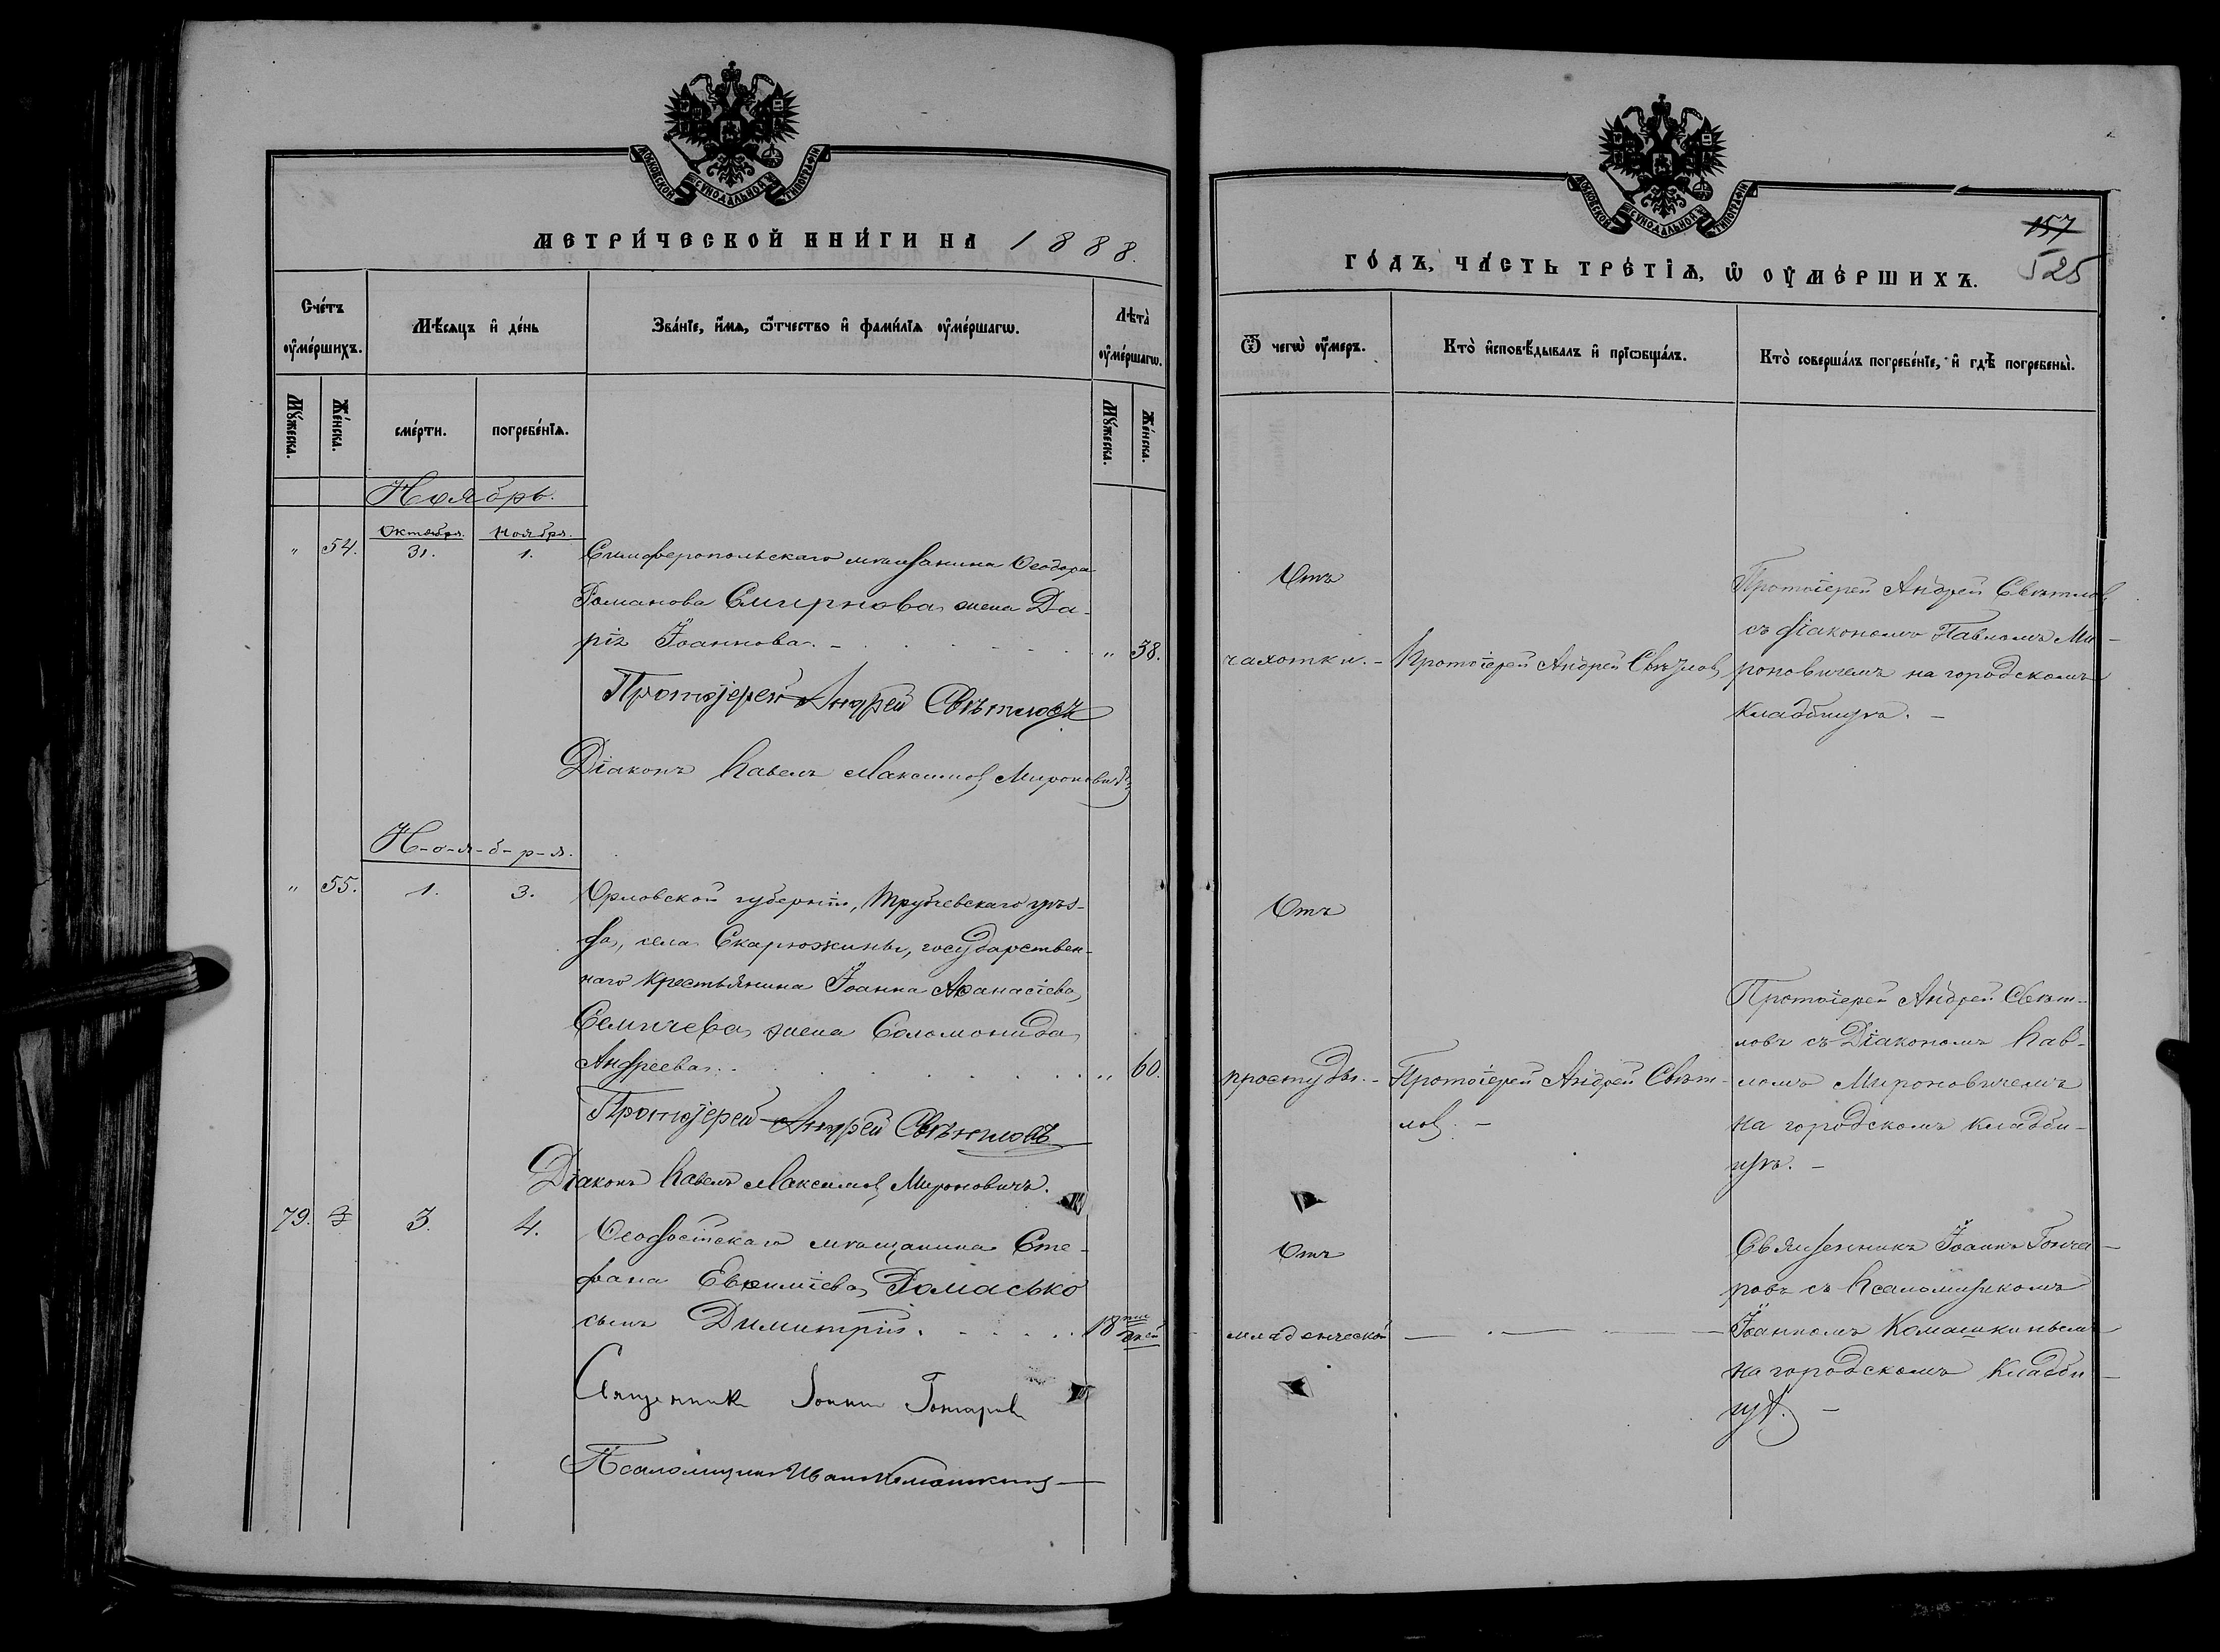 МОСКОВСКОЙ СѴНОДАЛЬНОЙ ТИПОГРАФІИ
МЕТРИ́ЧЕСКОЙ КНИ́ГИ НА 1888.
Сче́тъ оу҆ме́ршихъ.
Мѣ́сяцъ и҆ де́нь
Зва́нїе, и҆́мѧ, ѻ҆́тчество и҆ фами́лїѧ оу҆ме́ршагѡ.
Лѣта̀ оу҆ме́ршагѡ.
Мꙋ́жеска.
Же́нска.
сме́рти.
погребе́нїѧ.
Мꙋ́жеска.
Же́нска.
Ноябрь.
Октября. Ноября.
" 54. 31. 1. Симферопольскаго мѣщанина Ѳеодора
Романова Смирнова жена Да-
рія Іоаннова. - " 38.
Протоіерей Андрей Свѣтловъ
Діаконъ Павелъ Максимовъ Мироновичъ
Н-о-я-б-р-я.
" 55. 1. 3. Орловской губерніи, Трубчевскаго уѣз-
да, села Скарюжины, государствен-
наго крестьянина Іоанна Аѳанасіева
Семичева жена Соломонида
Андреева. " 60.
Протоіерей Андрей Свѣтловъ
Діаконъ Павелъ Максимовъ Мироновичъ.
79. 3. 4. Ѳеодосійскаго мѣщанина Сте-
фана Евѳиміева Ромасько
сынъ Димитрій. 18ти дней
Священникъ Іоаннъ Гончаровъ
Псаломщикъ Иванъ Комашкинъ
МОСКОВСКОЙ СѴНОДАЛЬНОЙ ТИПОГРАФІИ
157
525
ГО́ДЪ, ЧА́СТЬ ТРЕ́ТЇѦ, Ѡ҆ ОУ҆МЕ́РШИХЪ.
Ѿ чегѡ̀ оу҆́меръ.
Кто̀ и҆сповѣ́дывалъ и҆ прїѡбща́лъ.
Кто̀ соверша́лъ погребе́нїе, и҆ гдѣ̀ погребены̀.
Отъ
чахотки. - Протоіерей Андрей Свѣтловъ
Протоіерей Андрей Свѣтловъ
съ діакономъ Павломъ Ми-
роновичемъ на городскомъ
кладбищѣ. -
Отъ
простуды. - Протоіерей Андрей Свѣт-
ловъ. -
Протоіерей Андрей Свѣт-
ловъ съ Діакономъ Пав-
ломъ Мироновичемъ
на городскомъ кладби-
щѣ. -
Отъ
младенческой
Священникъ Іоаннъ Гонча-
ровъ съ Псаломщикомъ
Іоанномъ Комашкинымъ
на городскомъ кладби-
щѣ. -